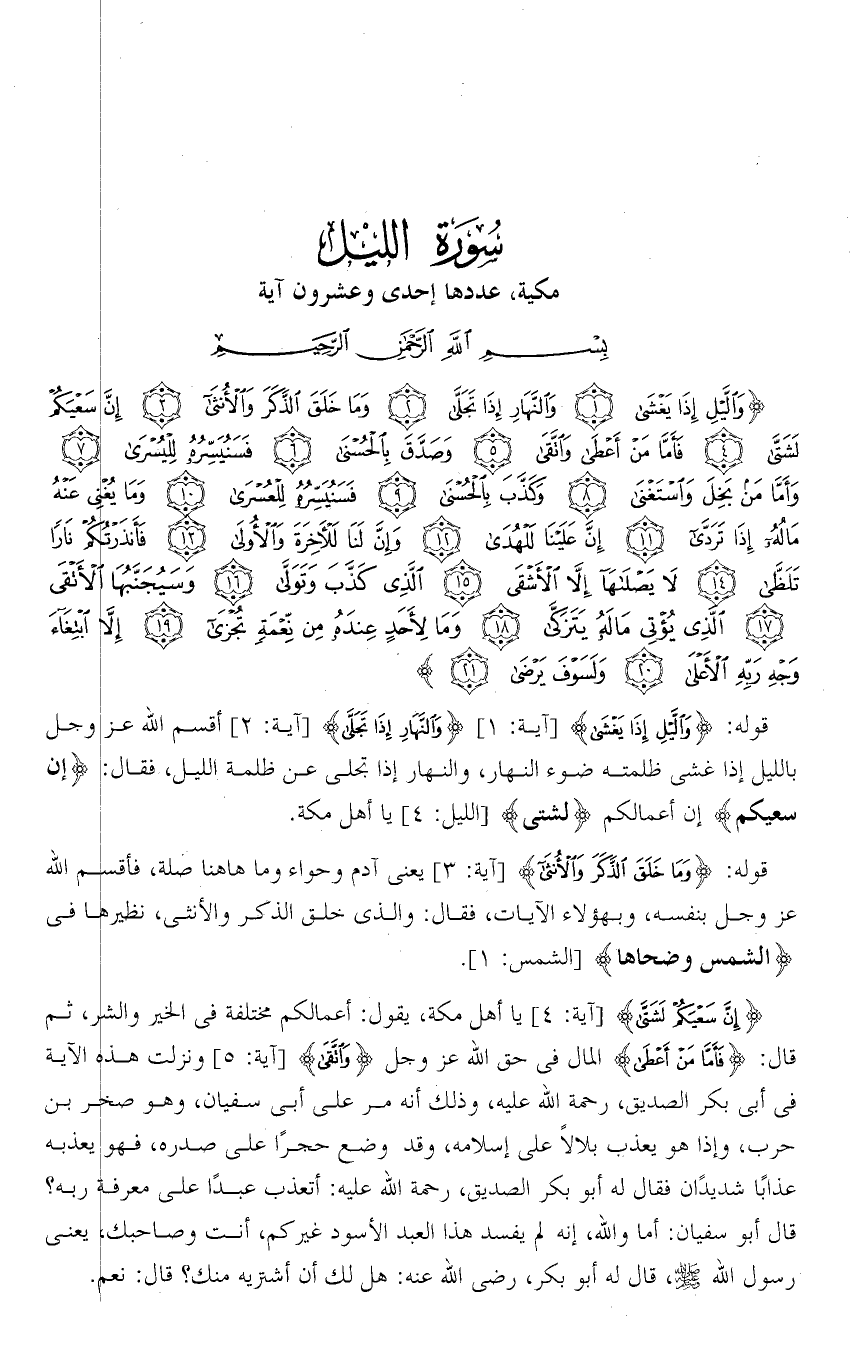 سُورَة الليْل
مكية، عددها إحدى وعشرون آية
بِسْمِ ٱللَّهِ ٱلرَّحْمَٰنِ ٱلرَّحِيمِ
﴿ وَٱلَّيْلِ إِذَا يَغْشَىٰ ١ وَٱلنَّهَارِ إِذَا تَجَلَّىٰ ٢ وَمَا خَلَقَ ٱلذَّكَرَ وَٱلْأُنثَىٰٓ ٣ إِنَّ سَعْيَكُمْ
لَشَتَّىٰ ٤ فَأَمَّا مَنْ أَعْطَىٰ وَٱتَّقَىٰ ٥ وَصَدَّقَ بِٱلْحُسْنَىٰ ٦ فَسَنُيَسِّرُهُۥ لِلْيُسْرَىٰ ٧
وَأَمَّا مَنۢ بَخِلَ وَٱسْتَغْنَىٰ ٨ وَكَذَّبَ بِٱلْحُسْنَىٰ ٩ فَسَنُيَسِّرُهُۥ لِلْعُسْرَىٰ ١٠ وَمَا يُغْنِى عَنْهُ
مَالُهُۥٓ إِذَا تَرَدَّىٰٓ ١١ إِنَّ عَلَيْنَا لَلْهُدَىٰ ١٢ وَإِنَّ لَنَا لَلْآخِرَةَ وَٱلْأُولَىٰ ١٣ فَأَنذَرْتُكُمْ نَارًا
تَلَظَّىٰ ١٤ لَا يَصْلَىٰهَآ إِلَّا ٱلْأَشْقَى ١٥ ٱلَّذِى كَذَّبَ وَتَوَلَّىٰ ١٦ وَسَيُجَنَّبُهَا ٱلْأَتْقَى
١٧ ٱلَّذِى يُؤْتِى مَالَهُۥ يَتَزَكَّىٰ ١٨ وَمَا لِأَحَدٍ عِندَهُۥ مِن نِّعْمَةٍ تُجْزَىٰٓ ١٩ إِلَّا ٱبْتِغَآءَ
وَجْهِ رَبِّهِ ٱلْأَعْلَىٰ ٢٠ وَلَسَوْفَ يَرْضَىٰ ٢١ ﴾
قوله: ﴿وَٱلَّيْلِ إِذَا يَغْشَىٰ﴾ [آية: ١] ﴿وَٱلنَّهَارِ إِذَا تَجَلَّىٰ﴾ [آية: ٢] أقسم الله عز وجل
بالليل إذا غشى ظلمته ضوء النهار، والنهار إذا تجلى عن ظلمة الليل، فقال: ﴿إن
سعيكم﴾ إن أعمالكم ﴿لشتى﴾ [الليل: ٤] يا أهل مكة.
قوله: ﴿وَمَا خَلَقَ ٱلذَّكَرَ وَٱلْأُنثَىٰٓ﴾ [آية: ٣] يعنى آدم وحواء وما هاهنا صلة، فأقسم الله
عز وجل بنفسه، وبهؤلاء الآيات، فقال: والذى خلق الذكر والأنثى، نظيرها فى
﴿الشمس وضحاها﴾ [الشمس: ١].
﴿إِنَّ سَعْيَكُمْ لَشَتَّىٰ﴾ [آية: ٤] يا أهل مكة، يقول: أعمالكم مختلفة فى الخير والشر، ثم
قال: ﴿فَأَمَّا مَنْ أَعْطَىٰ﴾ المال فى حق الله عز وجل ﴿وَٱتَّقَىٰ﴾ [آية: ٥] ونزلت هذه الآية
فى أبى بكر الصديق، رحمة الله عليه، وذلك أنه مر على أبى سفيان، وهو صخر بن
حرب، وإذا هو يعذب بلالاً على إسلامه، وقد وضع حجرًا على صدره، فهو يعذبه
عذابًا شديدًان فقال له أبو بكر الصديق، رحمة الله عليه: أتعذب عبدًا على معرفة ربه؟
قال أبو سفيان: أما والله، إنه لم يفسد هذا العبد الأسود غيركم، أنت وصاحبك، يعنى
رسول الله ﷺ، قال له أبو بكر، رضى الله عنه: هل لك أن أشتريه منك؟ قال: نعم.